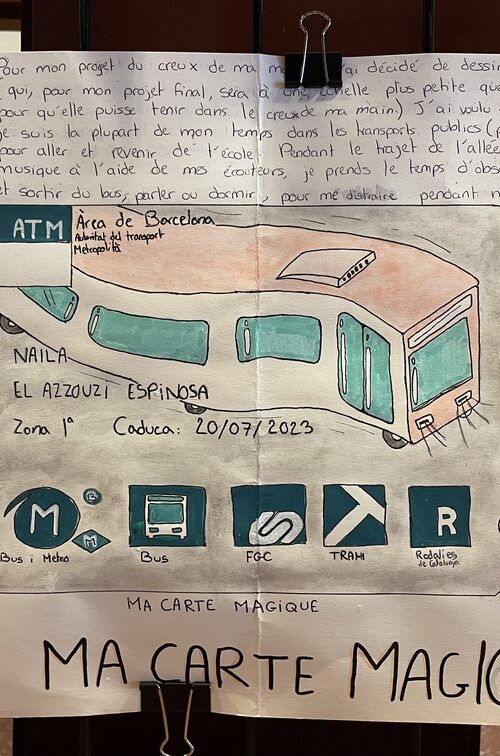 Pour mon projet du creux de ma ai décidé de dessin
qui, pour mon projet final, sera à une échelle plus petite que
pour qu'elle puisse tenir dans le creux de ma main.) J'ai voulu
je suis la plupart de mon temps dans les transports publics
pour aller et revenir de l'école. Pendant le trajet de l'allée
musique à l'aide de mes écouteurs, je prends le temps d'obs
et sortir du bus, parler ou dormir, pour me distraire pendant
ATM Àrea de Barcelona
Autoritat del transport
Metropolità
NAILA
EL AZZOUZI ESPINOSA
Zona 1ª Caduca: 20/07/2023
M M R
Bus i Metro Bus FGC TRAM Rodalies
de Catalunya
MA CARTE MAGIQUE
MA CARTE MAGIQ